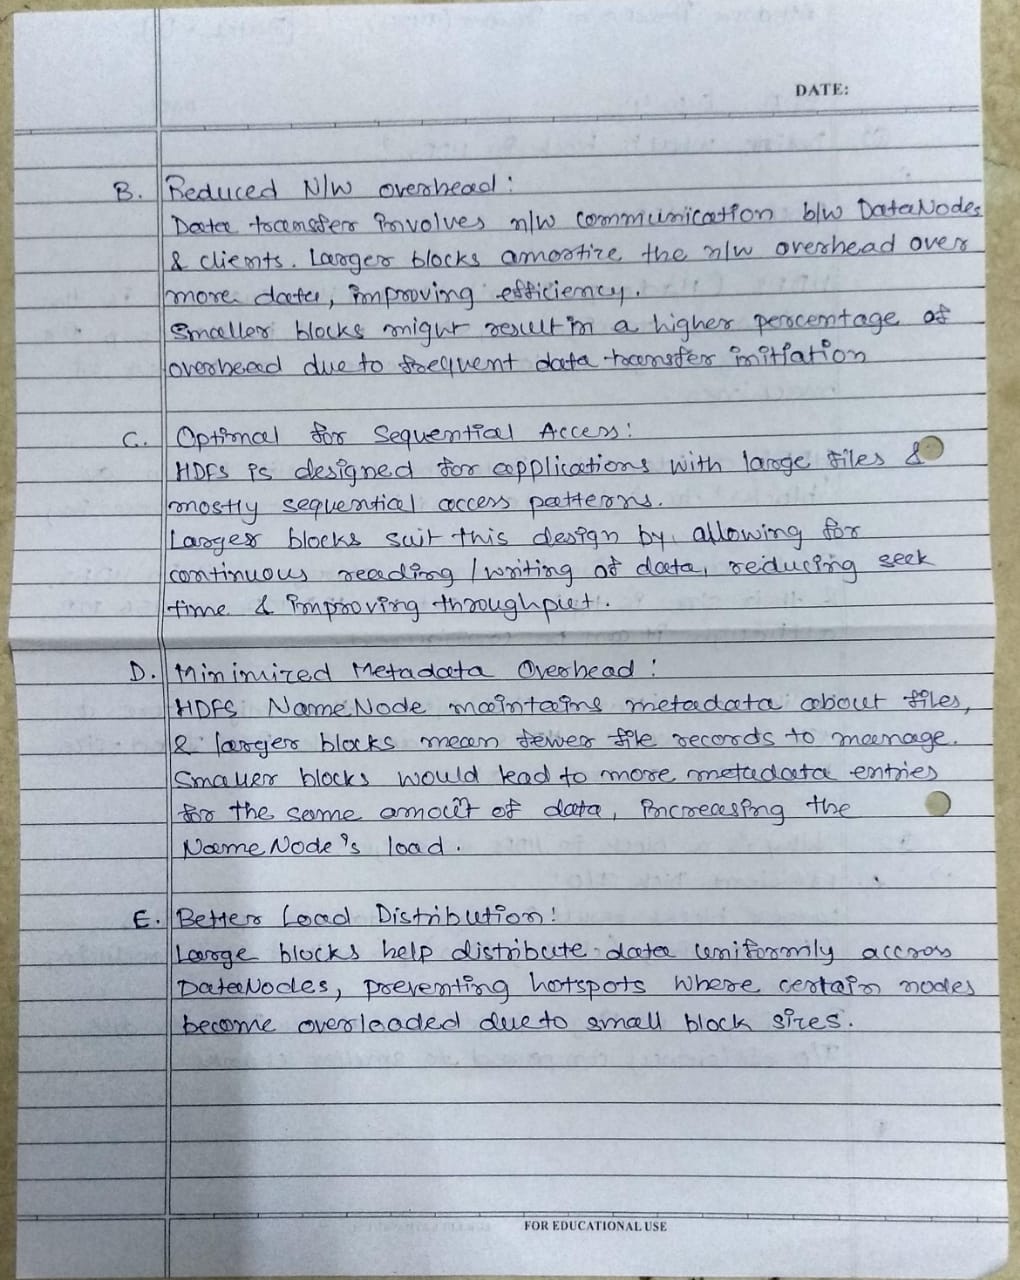 DATE:
B. Reduced N/W overhead:
Data transfer involves n/w communication b/w DataNodes
& clients. Larger blocks amortize the n/w overhead over
more data, improving efficiency.
Smaller blocks might result in a higher percentage of
overhead due to frequent data transfer initiation
C. Optimal for Sequential Access:
HDFS is designed for applications with large files &
mostly sequential access patterns.
Larger blocks suit this design by allowing for
continuous reading / writing of data, reducing seek
time & improving throughput.
D. Minimized Metadata Overhead:
HDFS NameNode maintains metadata about files,
& larger blocks mean fewer file records to manage.
Smaller blocks would lead to more metadata entries
for the same amout of data, increasing the
NameNode's load.
E. Better Load Distribution:
Large blocks help distribute data uniformily accross
DataNodes, preventing hotspots where certain nodes
become overloaded due to small block sizes.
FOR EDUCATIONAL USE